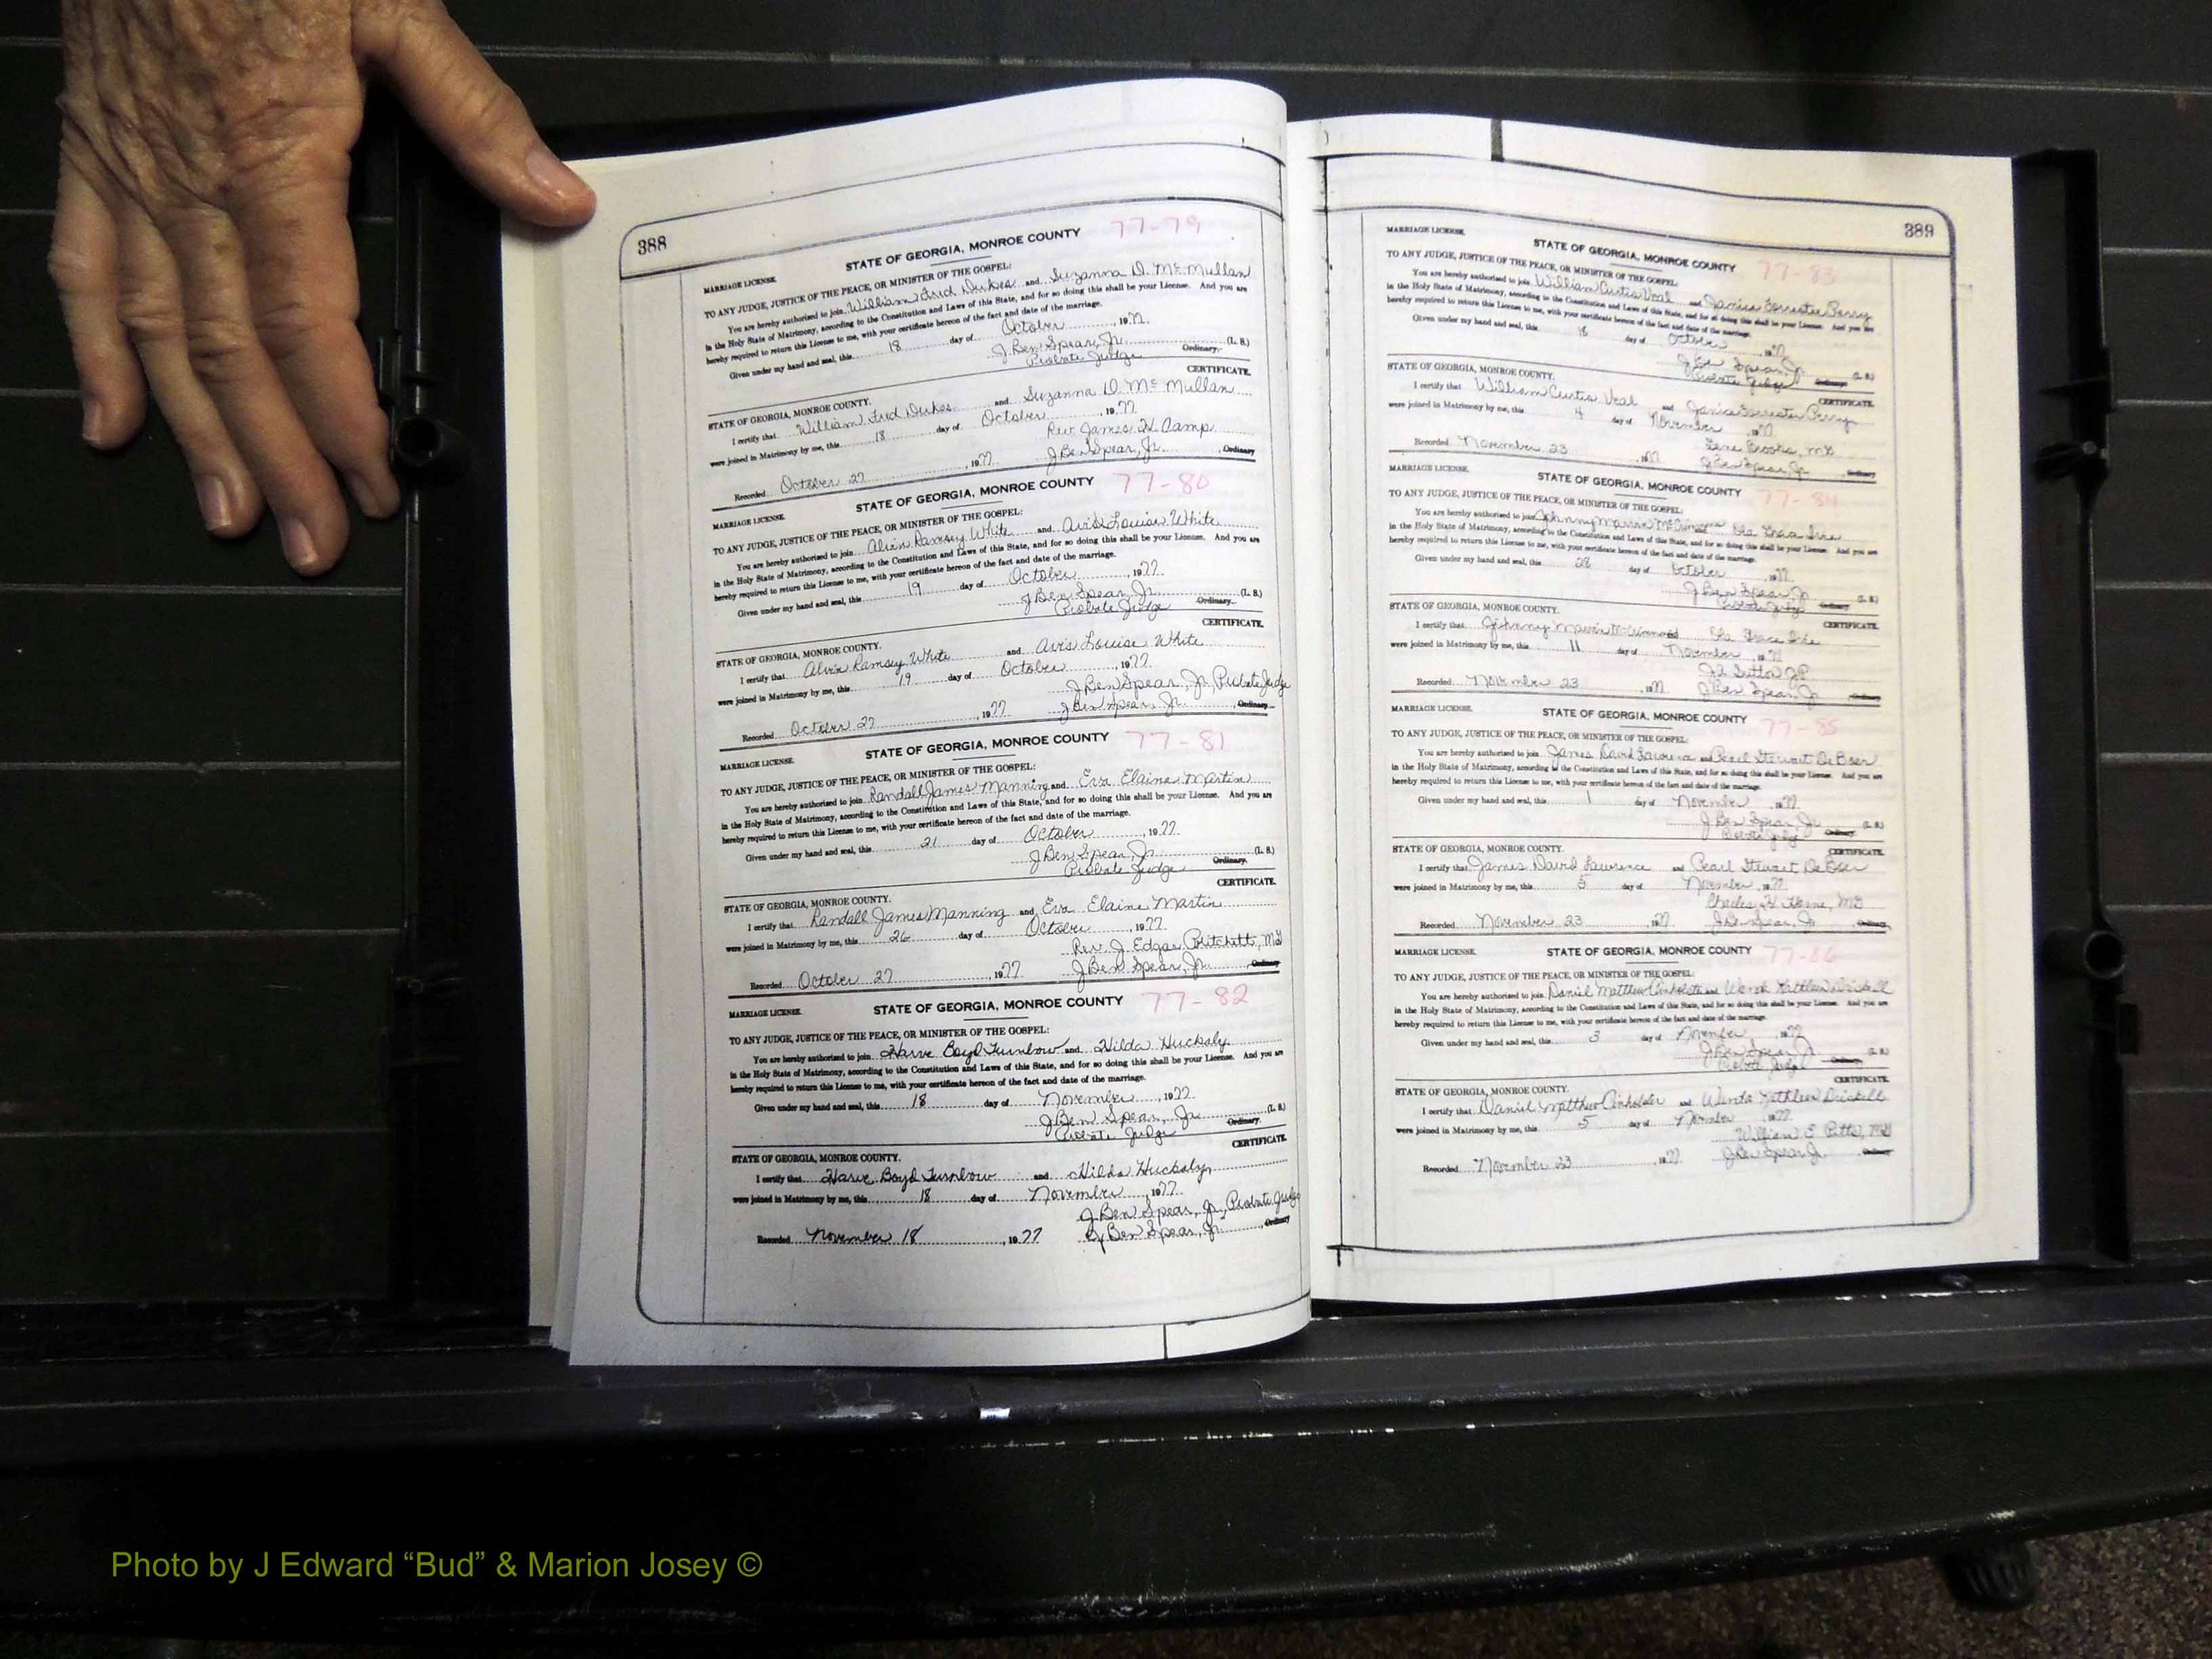 388
STATE OF GEORGIA, MONROE COUNTY 77-79
MARRIAGE LICENSE.
TO ANY JUDGE, JUSTICE OF THE PEACE, OR MINISTER OF THE GOSPEL:
You are hereby authorized to join William Fred Dukes and Suzanna D. McMullan
in the Holy State of Matrimony, according to the Constitution and Laws of this State, and for so doing this shall be your License. And you are
hereby required to return this License to me, with your certificate hereon of the fact and date of the marriage.
Given under my hand and seal, this 18 day of October, 1977
J. Ben Spear, Jr. (L. S.)
Probate Judge Ordinary.
CERTIFICATE.
STATE OF GEORGIA, MONROE COUNTY.
I certify that William Fred Dukes and Suzanna D. McMullan
were joined in Matrimony by me, this 18 day of October, 1977
Rev. James H. Camp
Recorded October 27, 1977 J Ben Spear, Jr., Ordinary
STATE OF GEORGIA, MONROE COUNTY 77-80
MARRIAGE LICENSE.
TO ANY JUDGE, JUSTICE OF THE PEACE, OR MINISTER OF THE GOSPEL:
You are hereby authorized to join Alvin Ramsey White and Avis Louise White
in the Holy State of Matrimony, according to the Constitution and Laws of this State, and for so doing this shall be your License. And you are
hereby required to return this License to me, with your certificate hereon of the fact and date of the marriage.
Given under my hand and seal, this 19 day of October, 1977
J Ben Spear, Jr. (L. S.)
Probate Judge Ordinary.
CERTIFICATE.
STATE OF GEORGIA, MONROE COUNTY.
I certify that Alvin Ramsey White and Avis Louise White
were joined in Matrimony by me, this 19 day of October, 1977
J Ben Spear, Jr, Probate Judge
Recorded October 27, 1977 J Ben Spear, Jr., Ordinary
STATE OF GEORGIA, MONROE COUNTY 77-81
MARRIAGE LICENSE.
TO ANY JUDGE, JUSTICE OF THE PEACE, OR MINISTER OF THE GOSPEL:
You are hereby authorized to join Randall James Manning and Eva Elaine Martin
in the Holy State of Matrimony, according to the Constitution and Laws of this State, and for so doing this shall be your License. And you are
hereby required to return this License to me, with your certificate hereon of the fact and date of the marriage.
Given under my hand and seal, this 21 day of October, 1977
J Ben Spear, Jr. (L. S.)
Probate Judge Ordinary.
CERTIFICATE.
STATE OF GEORGIA, MONROE COUNTY.
I certify that Randall James Manning and Eva Elaine Martin
were joined in Matrimony by me, this 26 day of October, 1977
Rev. J. Edgar Pritchett, MG
Recorded October 27, 1977 J Ben Spear, Jr., Ordinary
STATE OF GEORGIA, MONROE COUNTY 77-82
MARRIAGE LICENSE.
TO ANY JUDGE, JUSTICE OF THE PEACE, OR MINISTER OF THE GOSPEL:
You are hereby authorized to join Harve Boyd Turnbow and Hilda Huckaby
in the Holy State of Matrimony, according to the Constitution and Laws of this State, and for so doing this shall be your License. And you are
hereby required to return this License to me, with your certificate hereon of the fact and date of the marriage.
Given under my hand and seal, this 18 day of November, 1977
J Ben Spear, Jr. (L. S.)
Probate Judge Ordinary.
CERTIFICATE.
STATE OF GEORGIA, MONROE COUNTY.
I certify that Harve Boyd Turnbow and Hilda Huckaby
were joined in Matrimony by me, this 18 day of November, 1977
J Ben Spear, Jr., Probate Judge
Recorded November 18, 1977 J Ben Spear, Jr., Ordinary
389
MARRIAGE LICENSE.
STATE OF GEORGIA, MONROE COUNTY 77-83
TO ANY JUDGE, JUSTICE OF THE PEACE, OR MINISTER OF THE GOSPEL:
You are hereby authorized to join William Curtis Veal and Janice Forrester Perry
in the Holy State of Matrimony, according to the Constitution and Laws of this State, and for so doing this shall be your License. And you are
hereby required to return this License to me, with your certificate hereon of the fact and date of the marriage.
Given under my hand and seal, this 18 day of October, 1977
J Ben Spear, Jr (L. S.)
Probate Judge Ordinary
STATE OF GEORGIA, MONROE COUNTY. CERTIFICATE.
I certify that William Curtis Veal and Janice Forrester Perry
were joined in Matrimony by me, this 4 day of November, 1977
Gene Brooks, MG
Recorded November 23, 1977 J Ben Spear, Jr Ordinary
MARRIAGE LICENSE.
STATE OF GEORGIA, MONROE COUNTY 77-84
TO ANY JUDGE, JUSTICE OF THE PEACE, OR MINISTER OF THE GOSPEL:
You are hereby authorized to join Johnny Marvin Ola Grace
in the Holy State of Matrimony, according to the Constitution and Laws of this State, and for so doing this shall be your License. And you are
hereby required to return this License to me, with your certificate hereon of the fact and date of the marriage.
Given under my hand and seal, this 28 day of October, 1977
J Ben Spear, Jr (L. S.)
Probate Judge Ordinary
STATE OF GEORGIA, MONROE COUNTY. CERTIFICATE.
I certify that Johnny Marvin Ola Grace
were joined in Matrimony by me, this 11 day of November, 1977
Sutton JP
Recorded November 23, 1977 J Ben Spear, Jr Ordinary
MARRIAGE LICENSE.
STATE OF GEORGIA, MONROE COUNTY 77-85
TO ANY JUDGE, JUSTICE OF THE PEACE, OR MINISTER OF THE GOSPEL:
You are hereby authorized to join James David Lawrence and Pearl Stewart DeBoer
in the Holy State of Matrimony, according to the Constitution and Laws of this State, and for so doing this shall be your License. And you are
hereby required to return this License to me, with your certificate hereon of the fact and date of the marriage.
Given under my hand and seal, this 1 day of November, 1977
J Ben Spear, Jr (L. S.)
Probate Judge Ordinary
STATE OF GEORGIA, MONROE COUNTY. CERTIFICATE.
I certify that James David Lawrence and Pearl Stewart DeBoer
were joined in Matrimony by me, this 5 day of November, 1977
Charles H. MG
Recorded November 23, 1977 J Ben Spear, Jr Ordinary
MARRIAGE LICENSE.
STATE OF GEORGIA, MONROE COUNTY 77-86
TO ANY JUDGE, JUSTICE OF THE PEACE, OR MINISTER OF THE GOSPEL:
You are hereby authorized to join Daniel Matthew and Wanda Kathleen Driskell
in the Holy State of Matrimony, according to the Constitution and Laws of this State, and for so doing this shall be your License. And you are
hereby required to return this License to me, with your certificate hereon of the fact and date of the marriage.
Given under my hand and seal, this 3 day of November, 1977
J Ben Spear, Jr (L. S.)
Probate Judge Ordinary
CERTIFICATE.
STATE OF GEORGIA, MONROE COUNTY.
I certify that Daniel Matthew and Wanda Kathleen Driskell
were joined in Matrimony by me, this 5 day of November, 1977
William E Pitts, MG
Recorded November 23, 1977 J Ben Spear Jr. Ordinary
Photo by J Edward “Bud” & Marion Josey ©